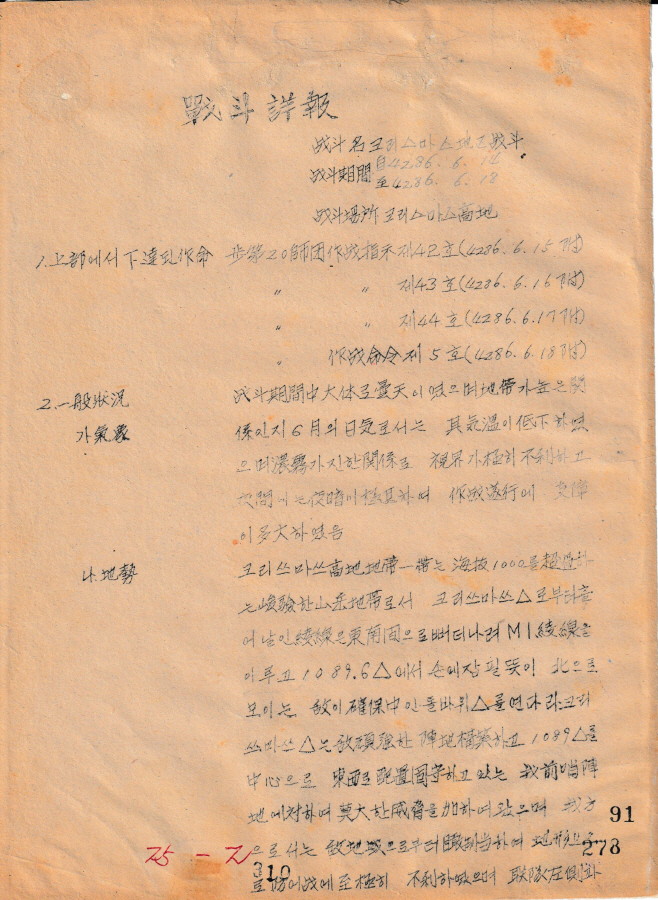 戰斗詳報
战斗名 크리스마스地区战斗
战斗期間 自4286. 6. 14
至4286. 6. 18
战斗場所 크리스마스高地
1. 上部에서 下達된 作命 步第20師団作战指示 제42호(4286. 6. 15付)
〃 〃 제43호(4286. 6. 16付)
〃 〃 제44호(4286. 6. 17付)
〃 作战命令 제 5호(4286. 6. 18付)
2. 一般狀況 战斗期間中 大体로 曇天이였으며 地帶가 높은 関
가 氣象 係인지 6月의 日気로서는 其気温이 低下하였
으며 濃霧가 진한 関係로 視界가 極히 不利하고
夜間에는 夜暗이 極甚하여 作战遂行에 支障
이 多大하였음
나. 地勢 크리쓰마쓰高地地帶一帶는 海抜1000를 超過하
는 峻險한 山岳地帶로서 크리쓰마쓰△로부터 흘
에 날인 綾線은 東南面으로 뻐더나려 M1綾線을
이루고 1089.6△에서 손에 잡필 뜻이 北으로
보이는 敵이 確保中인 돌바위△를 연다라 크리
쓰마쓰△는 敵頑强한 陣地構築하고 1089△를
中心으로 東西로 配置固守하고 있는 我前哨陣
地에 対하여 莫大한 威脅을 加하여 왔으며 我方
으로서는 敵地域으로부터 瞰制当하여 地形上으
로 防者战에 至極히 不利하였으며 聯隊左側와
75 - 2
310
91
278